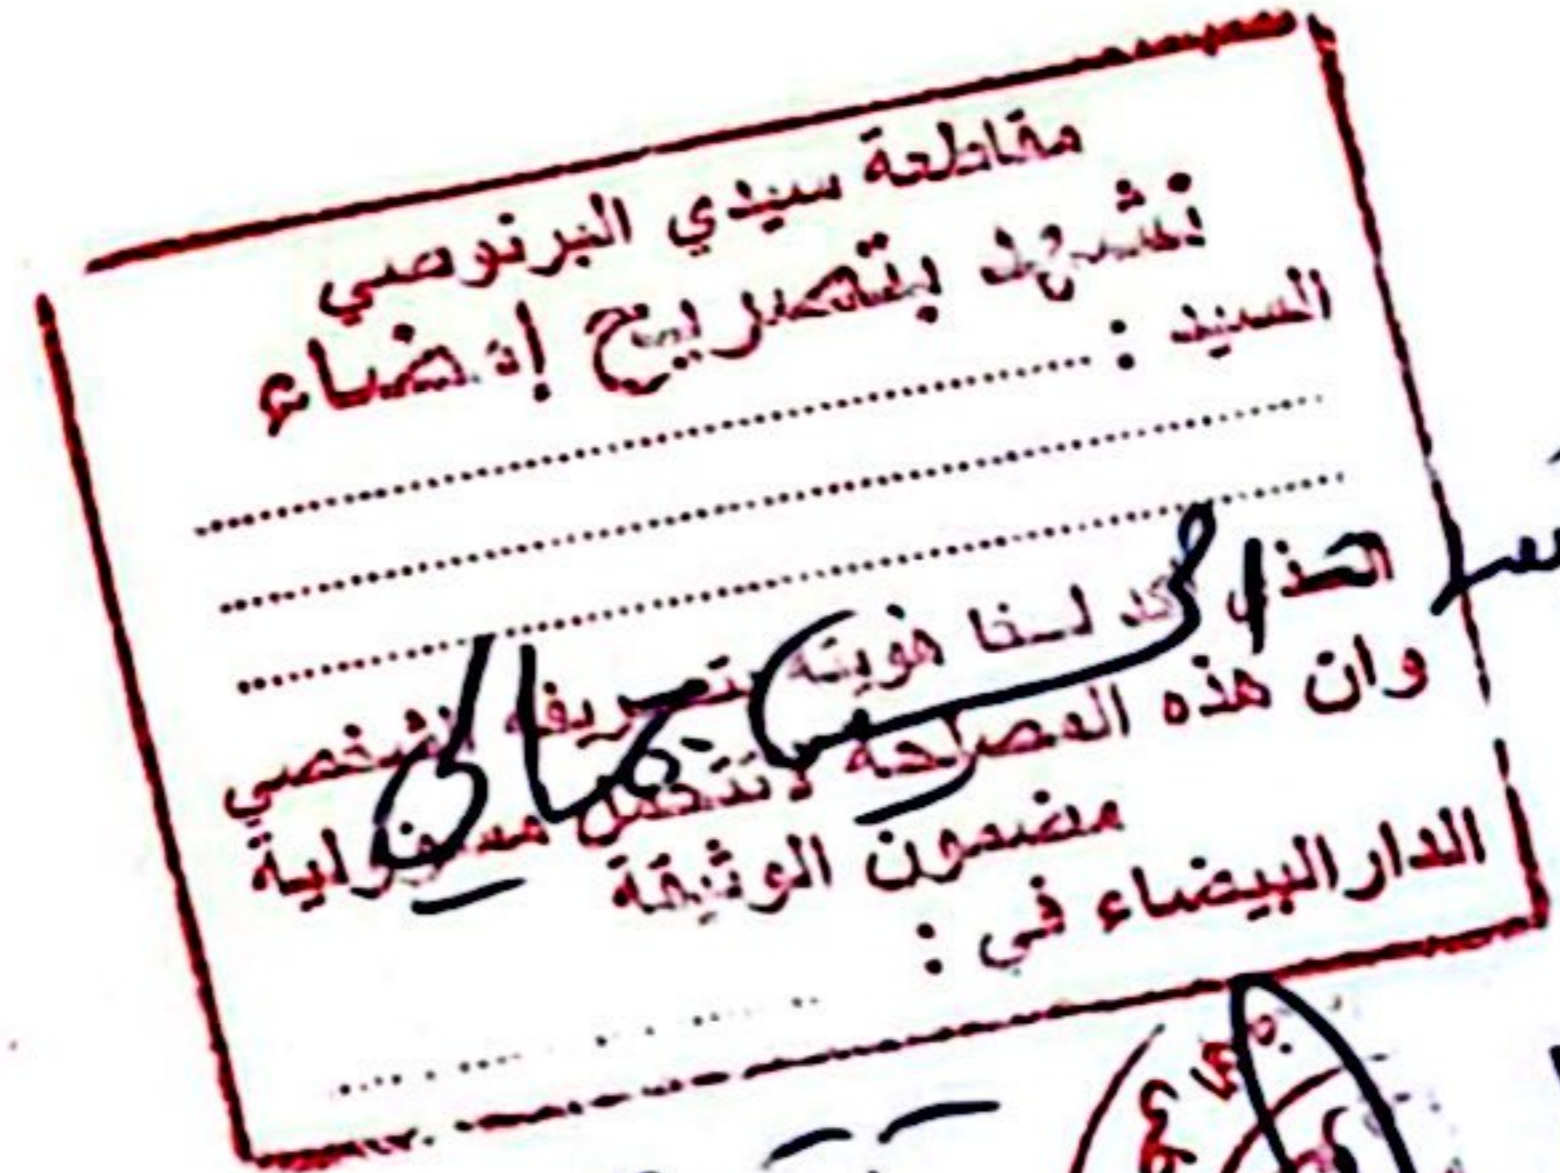 مقاطعة سيدي البرنوصي
نشهد بتصريح إمضاء
السيد :
الذي أكد لنا هويته بتعريفه الشخصي
وان هذه المصلحة لاتتحمل مسؤولية
مضمون الوثيقة
الدار البيضاء في :